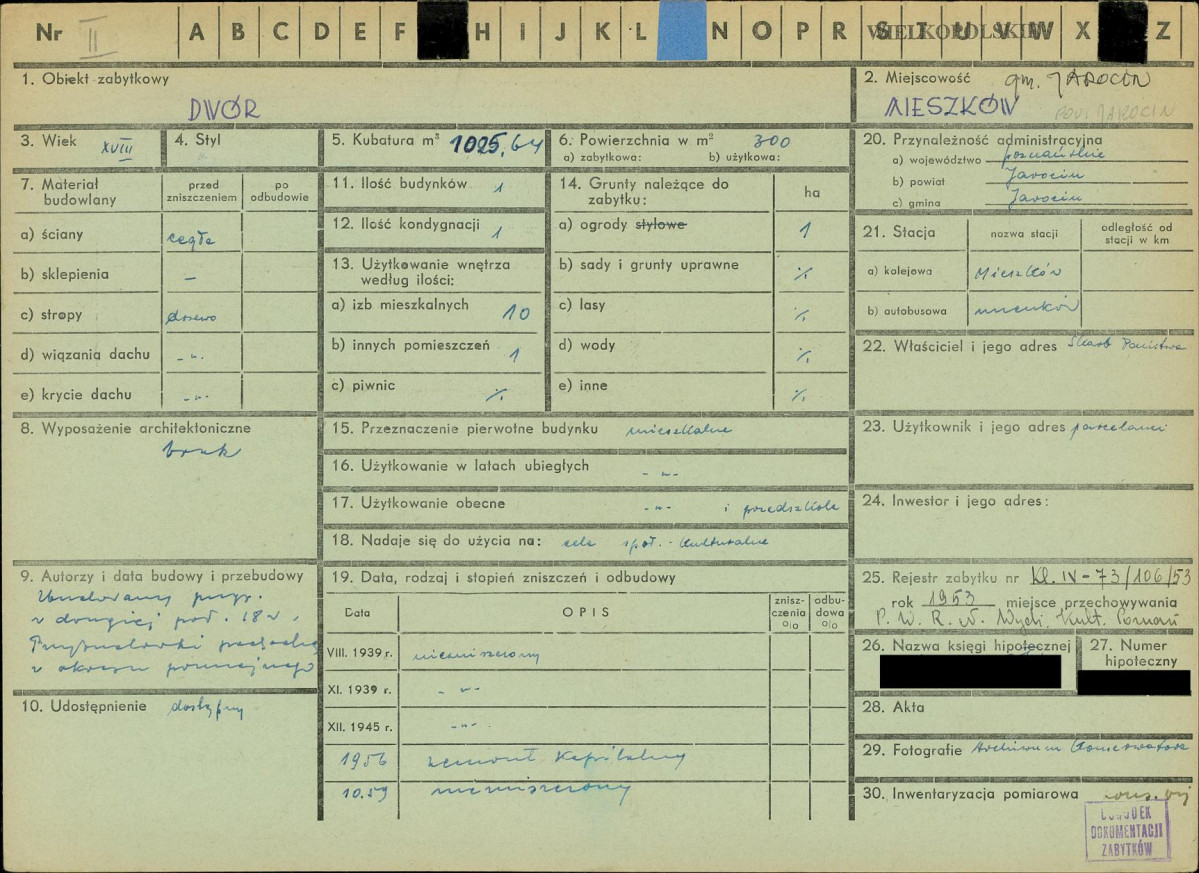 Nr II A B C D E F H I J K L N O P R S T U V W X Z
WIELKOPOLSKIE
1. Obiekt zabytkowy
DWÓR
2. Miejscowość gm. JAROCIN
MIESZKÓW
POW. JAROCIN
3. Wiek XVIII
4. Styl
5. Kubatura m³ 1025,64
6. Powierzchnia w m² 300
a) zabytkowa: b) użytkowa:
7. Materiał budowlany
przed zniszczeniem
po odbudowie
a) ściany cegła
b) sklepienia –
c) stropy drzewo
d) wiązania dachu -"-
e) krycie dachu -"-
8. Wyposażenie architektoniczne
brak
9. Autorzy i data budowy i przebudowy
Zbudowany przyp.
w drugiej poł. 18 w.
w okresie
10. Udostępnienie dostępny
11. Ilość budynków 1
12. Ilość kondygnacji 1
13. Użytkowanie wnętrza
według ilości:
a) izb mieszkalnych 10
b) innych pomieszczeń 1
c) piwnic %
14. Grunty należące do
zabytku:
ha
a) ogrody stylowe 1
b) sady i grunty uprawne %
c) lasy %
d) wody %
e) inne %
15. Przeznaczenie pierwotne budynku mieszkalne
16. Użytkowanie w latach ubiegłych -"-
17. Użytkowanie obecne -"- i przedszkole
18. Nadaje się do użycia na: cele społ.-kulturalne
19. Data, rodzaj i stopień zniszczeń i odbudowy
Data
OPIS
znisz-
czenia
o/o
odbu-
dowa
o/o
VIII. 1939 r. niezniszczony
XI. 1939 r. -"-
XII. 1945 r. -"-
1956 remont kapitalny
10.59 niezniszczony
20. Przynależność administracyjna
a) województwo poznańskie
b) powiat Jarocin
c) gmina Jarocin
21. Stacja
nazwa stacji
odległość od
stacji w km
a) kolejowa Mieszków
b) autobusowa Mieszków
22. Właściciel i jego adres Skarb Państwa
23. Użytkownik i jego adres parcelanci
24. Inwestor i jego adres:
25. Rejestr zabytku nr Kl. IV-73/106/53
rok 1953 miejsce przechowywania
P. W. R. N. Wydz. Kult. Poznań
26. Nazwa księgi hipotecznej
27. Numer
hipoteczny
28. Akta
29. Fotografie Archiwum Konserwatora
30. Inwentaryzacja pomiarowa
OŚRODEK
DOKUMENTACJI
ZABYTKÓW